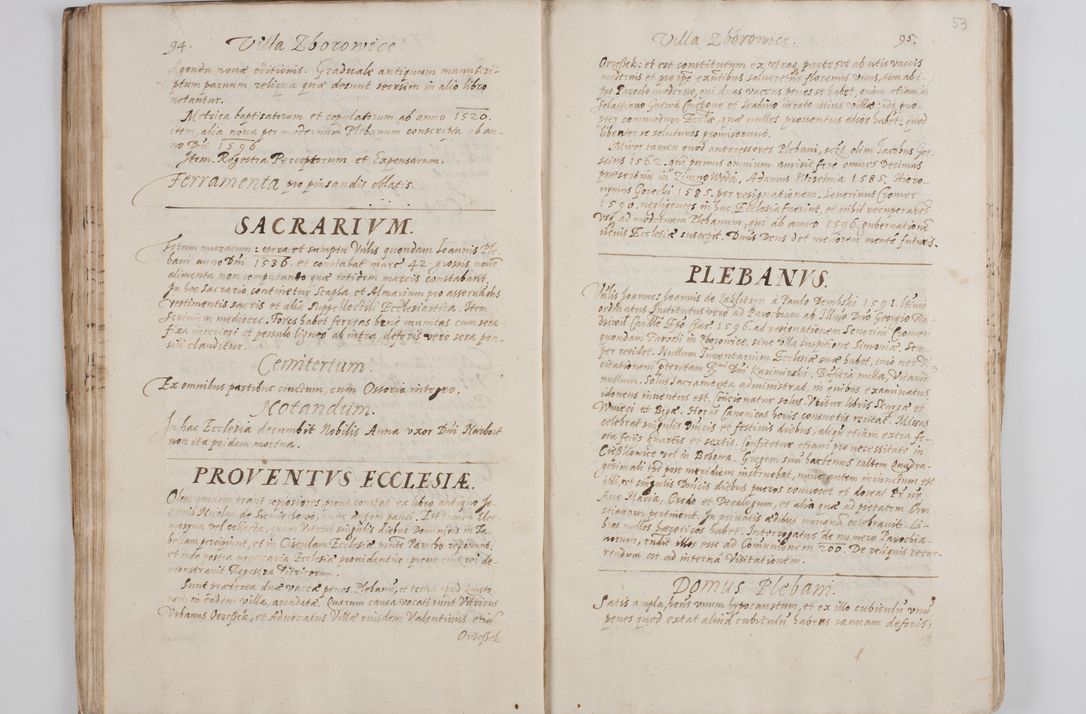 94. Villa Zborowice
Agenda nouæ editionis. Graduale antiquum manuscri-
ptum paruum, reliqua quæ desunt seorsim in alio libro
notantur.
Metrica baptisatorum et copulatorum ab anno 1520.
item, alia noua per modernum Plebanum conscripta ab an-
no Dni 1596.
Item Regestra Perceptorum et Expensarum.
Ferramenta pro pinsandis oblatis.
SACRARIVM.
Totum muratum: opera et sumptu Vnlis quondam Ioannis Ple-
bani anno Dni 1586. et constabat marc. 42. grossis
alimenta non computando quæ totidem marcis constabant.
In hoc Sacrario continetur Scapsa, et Almarium pro asseruandis
vestimentis sacris et alia Suppellectili Ecclesiastica. Item
Scrinium mediocre. Fores habet ferreas bene munitas cum sera
fixa interiori et pessulo ligneo ab intra, deforis vero sera pen-
sili clauditur.
Cemiterium.
Ex omnibus partibus cinctum, cum Ossorio integro.
Notandum.
In hac Ecclesia decumbit Nobilis Anna vxor Dni
non ita pridem mortua.
PROVENTVS ECCLESIÆ.
Olim quidem erant copiosiores, prout constat ex libro antiquo
Nicolai de nunc autem pauci. Est tamen Ele-
mosyna vel collecta, quam Vitrici singulis diebus Dominicis in Ta-
bellam percipiunt, et in Cistulam Ecclesiæ reponunt,
et inde postea necessaria Ecclesiæ prouidentur: prout eius rei de-
monstrauit Regestra Vitricorum.
Sunt præterea duæ vaccæ penes Plebanum, et tertia apud
in eadem villa, arendatæ. Quarum causa vocati sunt Vitricus
Vrbanus Orzeszek, et Aduocatus Villæ eiusdem Valentinus etiam
Orzeszek
53
Villa Zborowice. 95.
Orzeszek: et est constitutum ex vtraque parte, vt ab istis vaccis
modernis et pro tempore existentibus solueretur florenus vnus, tam ab
Parocho moderno, qui duas vaccas penes se habet, quam etiam a
Sebastiano et Scabino iurato istius villæ: idque pro-
pter commodum Ecclesiæ, quæ nullos prouentus alios habet: quod
libenter se soluturos promiserunt.
Miror tamen quod antecessores Plebani, scilicet olim Iacobus
1562. qui primus omnium amisit fere omnes Decimas
præsertim in Zimnowoda, Adamus 1585. Hiero-
nymus Gorecki 1585. per resignationem. Seuerinus Cromer
1590. negligentes in hac Ecclesia fuerint, et nihil recuperarunt
vsque ad modernum Plebanum, qui ab anno 1596. gubernationem
illius Ecclesiæ suscepit. Dnus Deus det meliorem mentem futuris.
PLEBANVS.
Vnlis Ioannes Ioannis de Zakliczyn a Paulo Dembski 1591.
ordinatus. Institutus vero ad Parochiam ab Illmo Dno Georgio Ra-
diuil 1596. ad resignationem Seuerini Cromer
quondam Parochi in Zborowice, sine vlla suspitione Simoniæ. Sem-
per residet. Nullum Inuentarium Ecclesiæ suæ habet, vnicam Vi-
sitationem præteritam Rmi Dni Kazimirski. Beneficia nulla, Vicarium
nullum. Solus Sacramenta administrat, in quibus examinatus
idoneus inuentus est. Concionatur solus. Vtitur libris Skargæ et
Wuieci et Bigæ. Horas Canonicas horis consuetis recitat. Missas
celebrat singulis Dnicis et festiuis diebus, aliquando etiam extra fe-
sta feriis quartis et sextis. Confitetur etiam pro necessitate in
Ciężkowice vel in Bobowa. Gregem suum hactenus saltem Quadra-
gesimali tempore post meridiem instruebat, nunc autem iniunctum est
illi vt singulis Dnicis diebus pueros conuocet et doceat Pater no-
ster Aue Maria, Credo et Decalogum, et alia quæ ad pietatem Chri-
stianam pertinent. In priuatis ædibus nunquam celebrauit. Li-
bros nullos hæreticos habet. Interrogatus de numero Parochia-
norum, rndit illos esse ad Communionem 200. De reliquis recur-
rendum est ad internam Visitationem.
Domus Plebani.
Satis ampla, habens vnum hypocaustum, et ex illo cubiculum vnum
penes quod extat aliud cubiculum habens ianuam deforis;
et